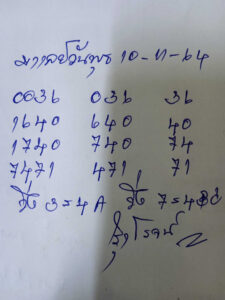 มาเลย์วันพุธ 10-11-64
0036 036 36
1640 640 40
1740 740 74
7471 471 71
วิ่ง 3=4 วิ่ง 7=4